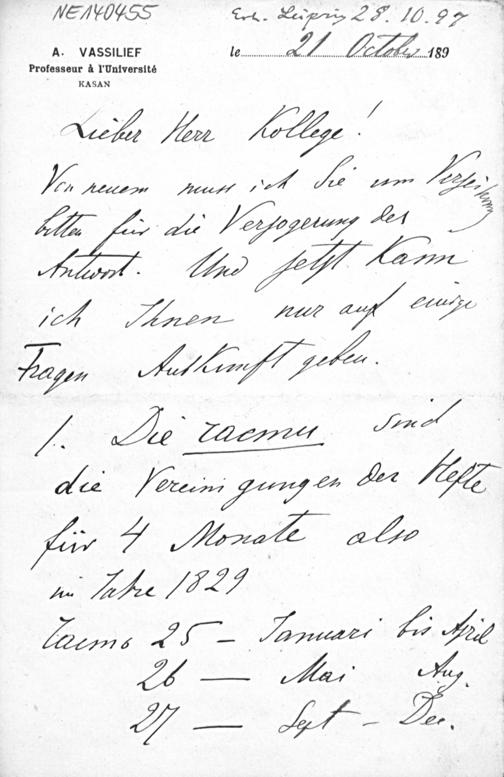 NE140455
Erh. Leipzig 28.10.97
A. VASSILIEF
Professeur à l'Université
KASAN
le 21 October 189
Lieber Herr Kollege!
Von neuem muss ich Sie um Verzeihung
bitten für die Verzogerung der
Antwort. Und jetzt Kann
ich Ihnen nur auf einige
Fragen Auskunft geben.
1. Die части sind
die Vereinigungen der Hefte
für 4 Monate also
im Jahre 1829
Часть 25 — Januari bis April
26 — Mai Aug.
27 — Sept – Dec.